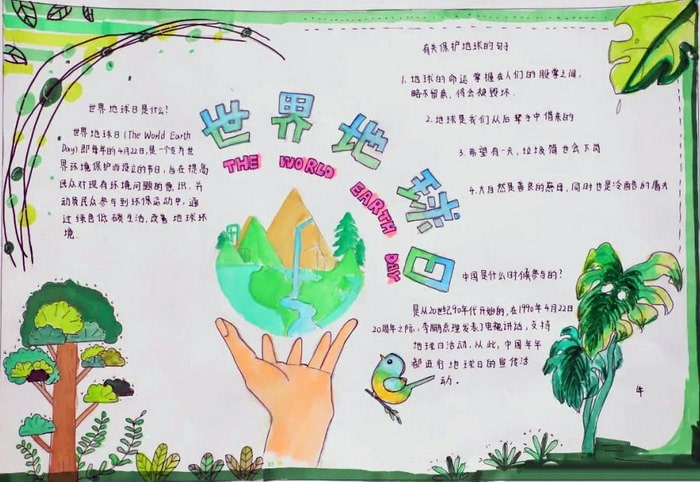 世界地球日
THE WORLD EARTH DAY
世界地球日是什么?
世界地球日(The World Earth
Day)即每年的4月22日,是一个专为世
界环境保护而设立的节日,旨在提高
民众对现有环境问题的意识,并
动员民众参与到环保运动中,通
过绿色低碳生活,改善地球环
境.
有关保护地球的句子
1.地球的命运掌握在人们的股掌之间,
略不留意,将会被毁坏.
2.地球是我们从后辈手中借来的
3.希望有一天,垃圾箱也会下岗
4.大自然是善良的慈母,同时也是冷酷的屠夫
中国是什么时候参与的?
是从20世纪90年代开始的,在1990年4月22日
20周年之际,李鹏总理发表了电视讲话,支持
地球日活动,从此,中国年年
都进行地球日的宣传活
动.
牛